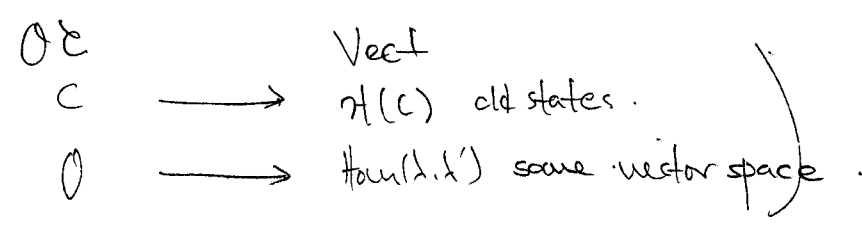 Vect
C ⟶ H(C) cld states.
O ⟶ Hom(λ,λ') some vector space.